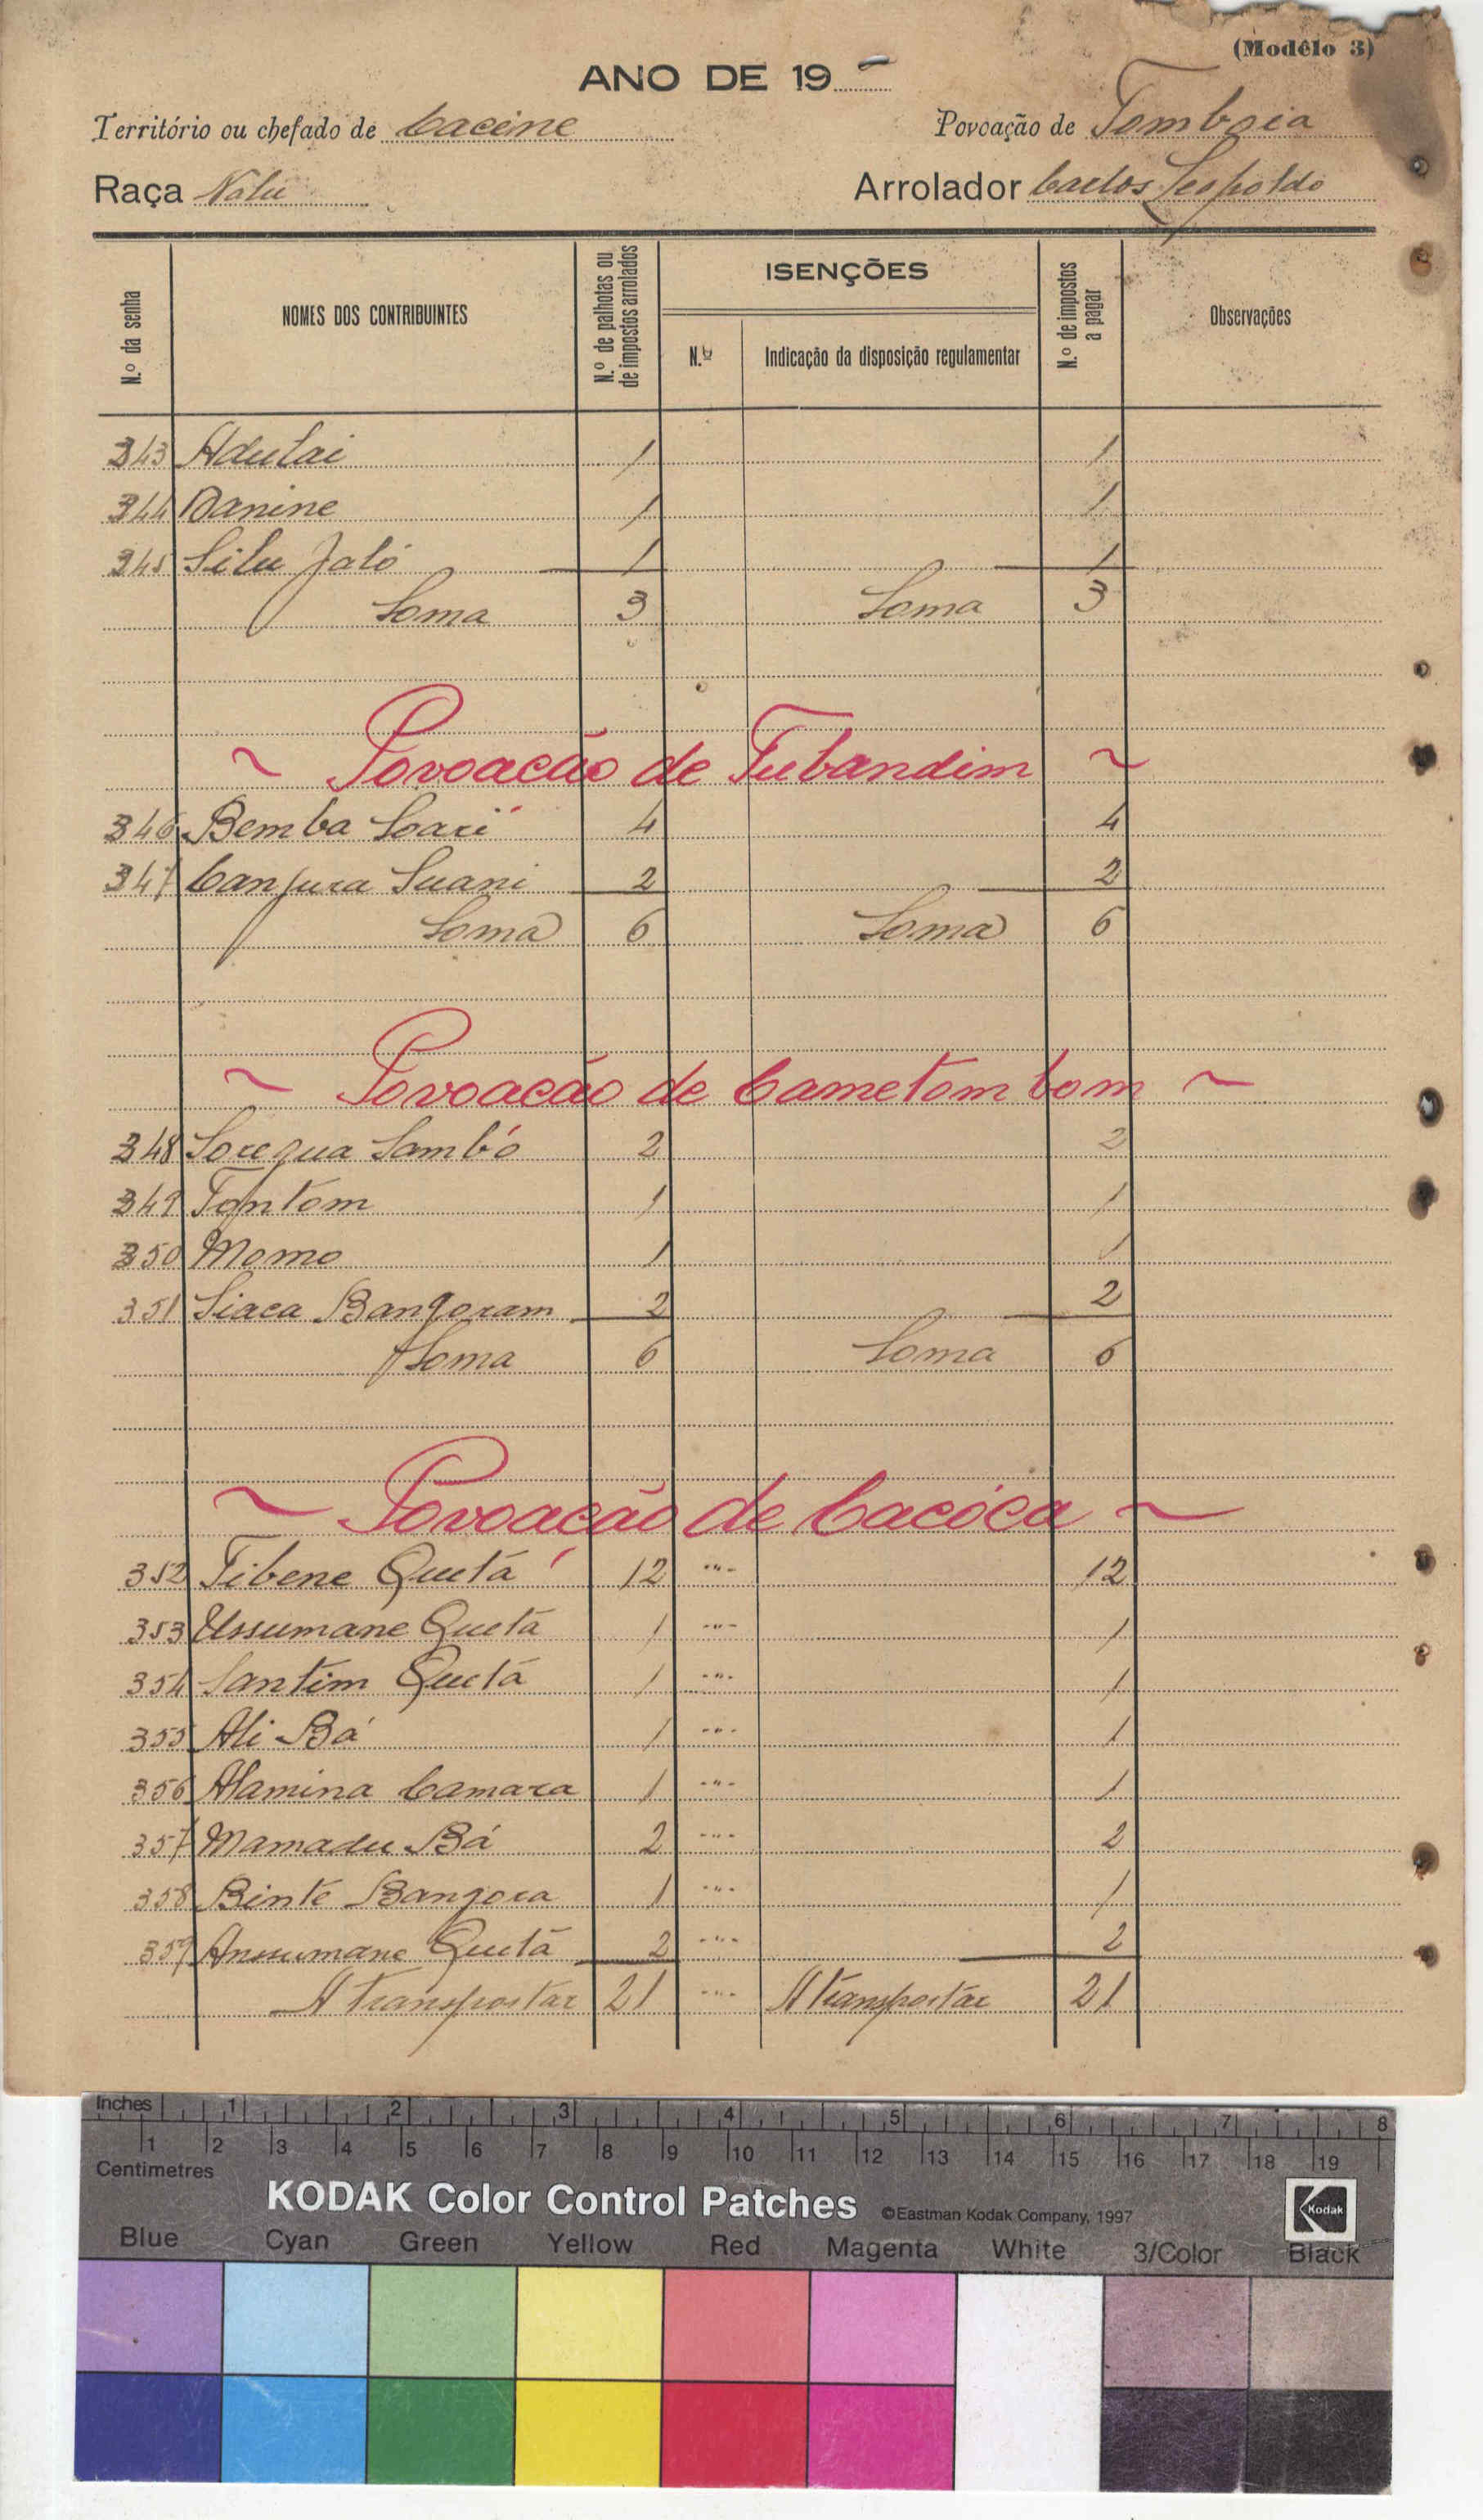 (Modêlo 3)
ANO DE 19
Território ou chefado de Cacine Povoação de Tomboia
Raça Nalú Arrolador Carlos Leopoldo
N.º da senha NOMES DOS CONTRIBUINTES N.º de palhotas ou de impostos arrolados ISENÇÕES N.º de impostos a pagar Observações
N.º Indicação da disposição regulamentar
343 Adulai 1 1
344 Danine 1 1
345 Silu Jaló 1 1
Soma 3 Soma 3
~ Povoacão de Tubandim ~
346 Bemba 4 4
347 Canjura Suani 2 2
Soma 6 Soma 6
~ Povoacão de Cametombom ~
348 Sambó 2 2
349 Tontom 1 1
350 Momo 1 1
351 Siaca Bangoram 2 2
Soma 6 Soma 6
~ Povoacão de Cacóca ~
352 Tibene Quetá 12 -"- 12
353 Ussumane Quetá 1 -"- 1
354 Santim Quetá 1 -"- 1
355 Ali Bá 1 -"- 1
356 Alamina Camara 1 -"- 1
357 Mamadu Bá 2 -"- 2
358 Binte Bangora 1 -"- 1
359 Ansumane Quetá 2 -"- 2
A transportar 21 -"- A transportar 21
Inches 1 2 3 4 5 6 7 8
1 2 3 4 5 6 7 8 9 10 11 12 13 14 15 16 17 18 19
Centimetres
KODAK Color Control Patches ©Eastman Kodak Company, 1997 Kodak
Blue Cyan Green Yellow Red Magenta White 3/Color Black